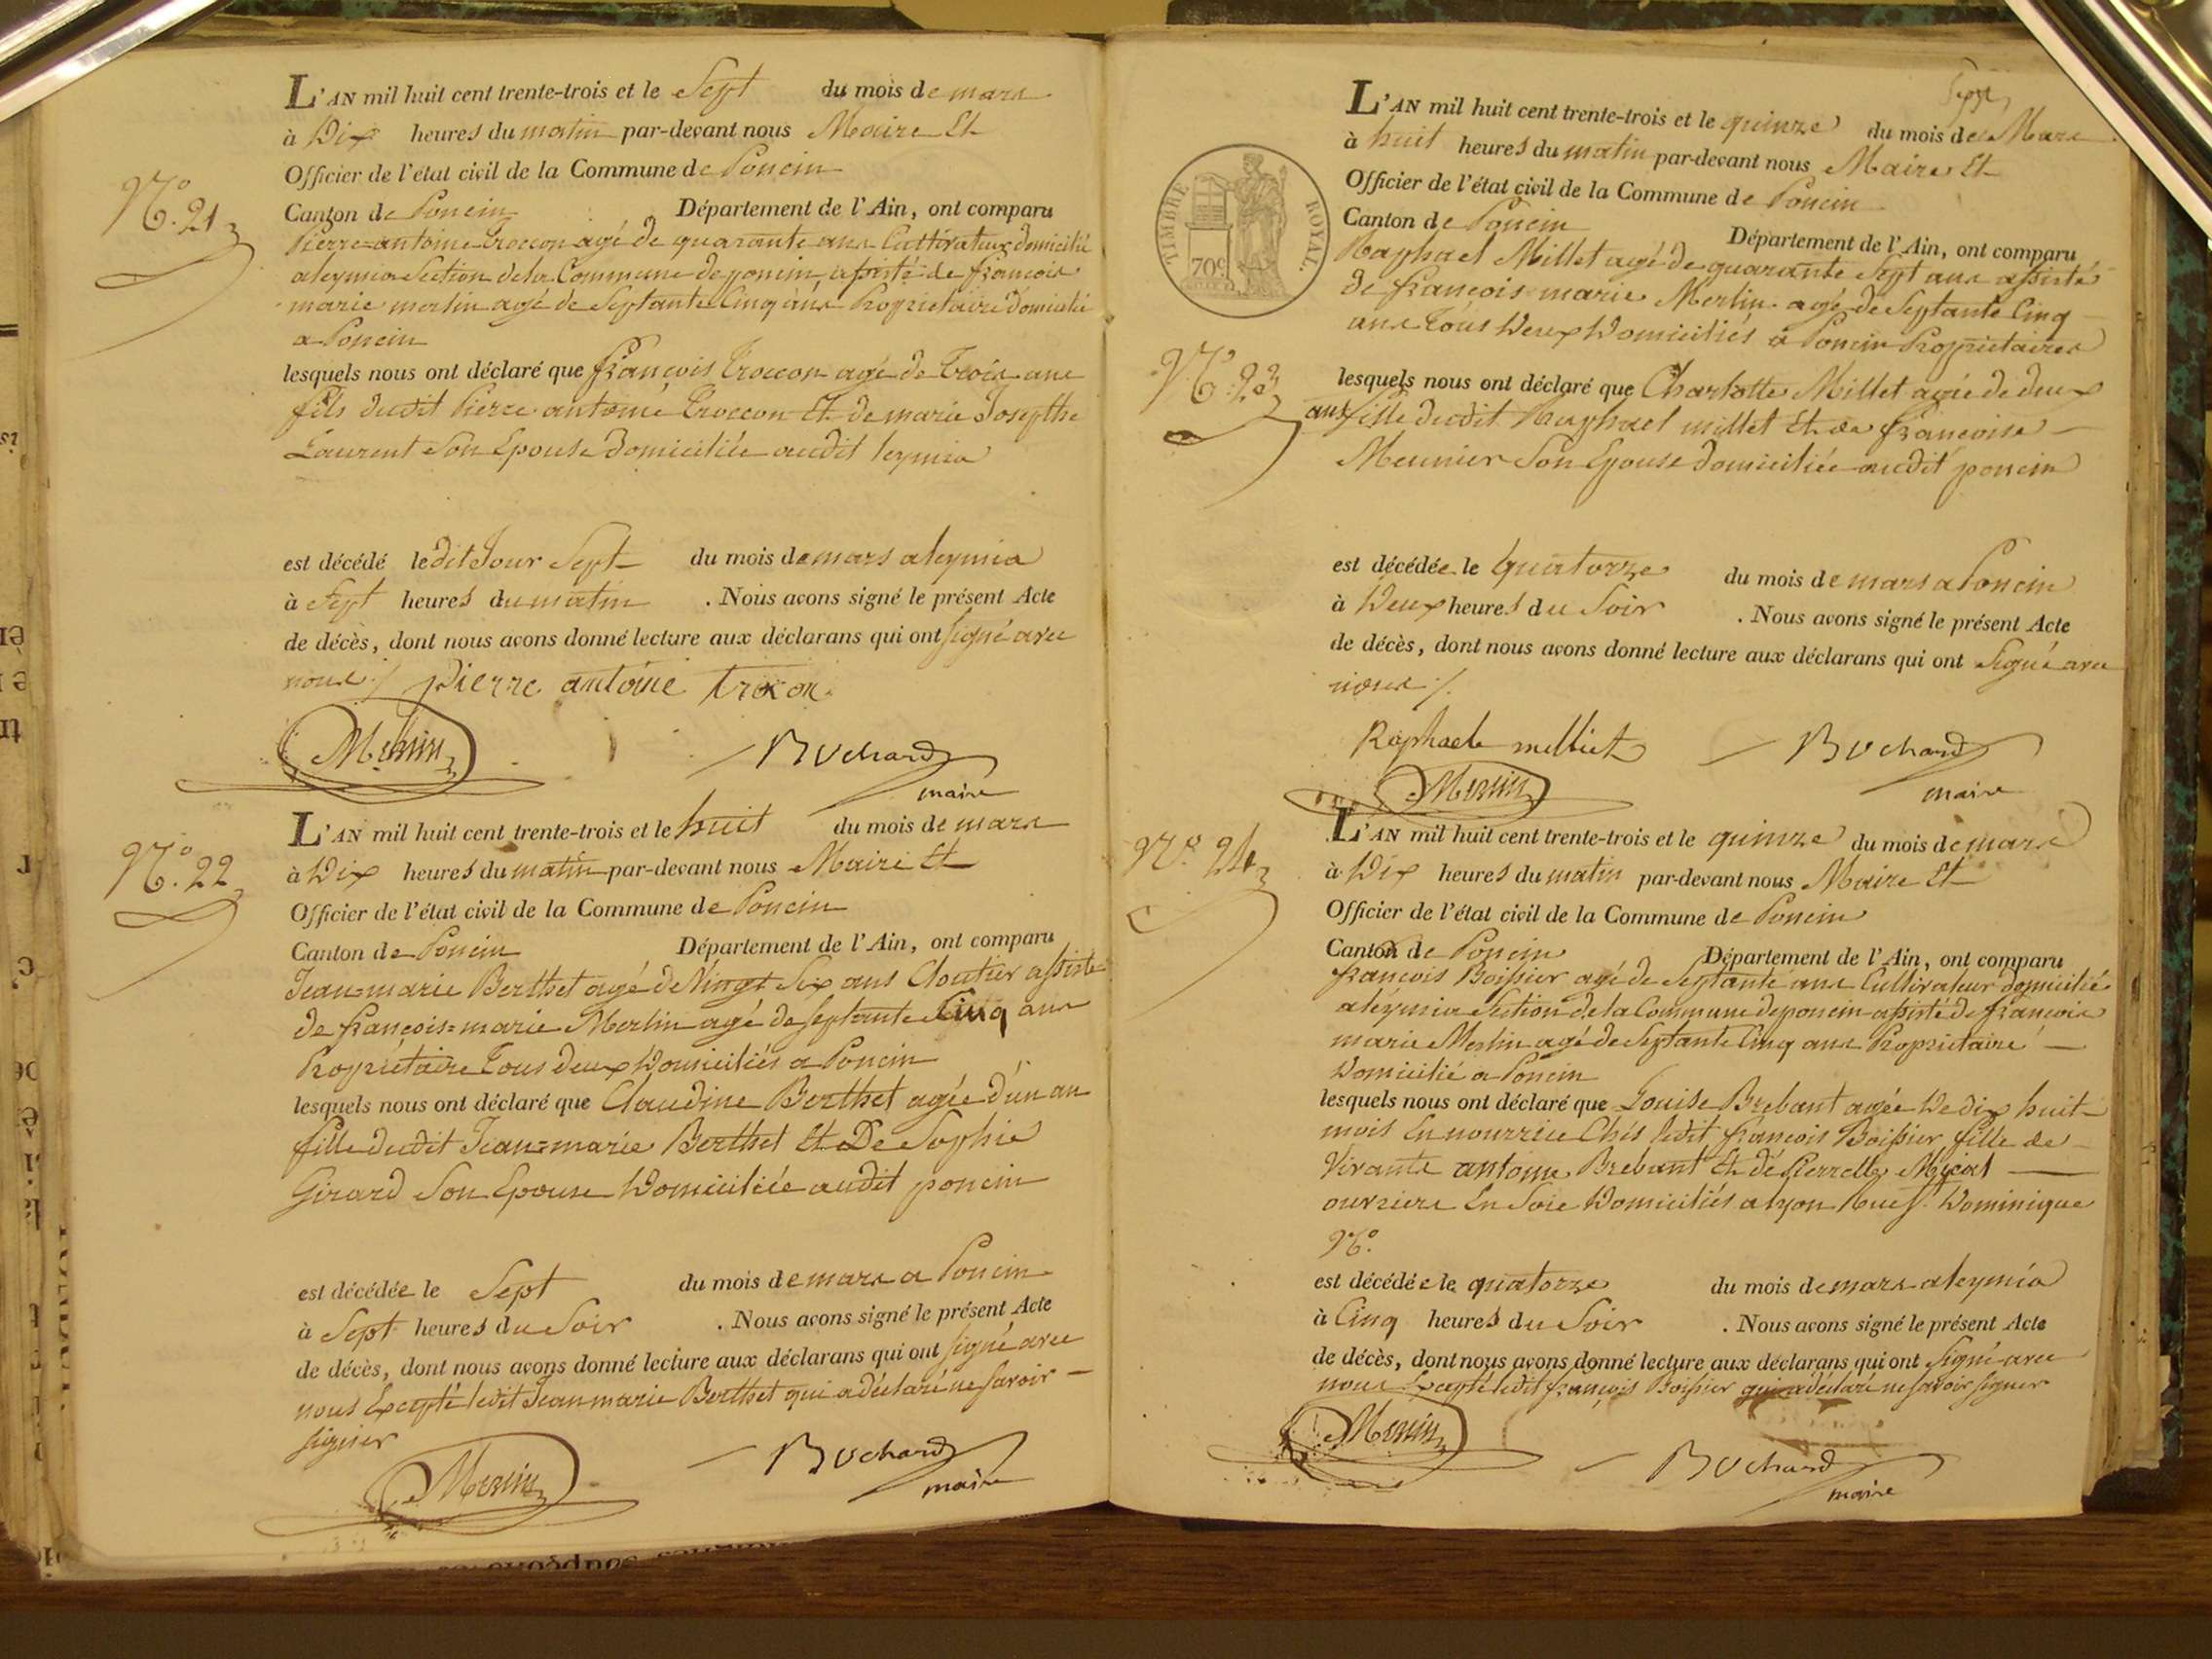 N.o 21
L'AN mil huit cent trente-trois et le Sept du mois de mars
à Dix heures du matin par-devant nous Maire Et
Officier de l'état civil de la Commune de Poncin
Canton de Poncin Département de l'Ain, ont comparu
Pierre=antoine Troccon agé de quarante ans Cultivateur domicilié
a leymia Section de la Commune de poncin, assisté de francois
marie merlin agé de Septante Cinq ans Proprietaire domicilié
a Poncin
lesquels nous ont déclaré que françois Troccon agé de Trois ans
fils dudit Pierre antoine Troccon Et de marie Josepthe
Laurent Son Epouse Domiciliée audit leymia
est décédé ledit Jour Sept du mois de mars a leymia
à Sept heures du matin . Nous avons signé le présent Acte
de décès, dont nous avons donné lecture aux déclarans qui ont signé avec
nous ./ pierre antoine trocon
Merlin Buchard
maire
N.o 22
L'AN mil huit cent trente-trois et le huit du mois de mars
à Dix heures du matin par-devant nous Maire Et
Officier de l'état civil de la Commune de Poncin
Canton de Poncin Département de l'Ain, ont comparu
Jean=marie Berthet agé de Vingt Six ans Cloutier assisté
de françois=marie Merlin agé de septante Cinq ans
Propriétaire Tous deux Domiciliés a Poncin
lesquels nous ont déclaré que Claudine Berthet agée d'un an
fille dudit Jean=marie Berthet Et De Sophie
Girard Son Epouse Domiciliée audit poncin
est décédée le Sept du mois de mars a Poncin
à Sept heures du Soir . Nous avons signé le présent Acte
de décès, dont nous avons donné lecture aux déclarans qui ont signé avec
nous Excepté ledit Jean marie Berthet qui a déclaré ne savoir
signer
Merlin Buchard
maire
Sept
TIMBRE ROYAL.
70c
N.o 23
L'AN mil huit cent trente-trois et le quinze du mois de Mars
à huit heures du matin par-devant nous Maire Et
Officier de l'état civil de la Commune de Poncin
Canton de Poncin Département de l'Ain, ont comparu
Raphael Millet agé de quarante Sept ans assisté
de françois marie Merlin agé de Septante Cinq
ans Tous Deux Domiciliés a Poncin Proprietaires
lesquels nous ont déclaré que Charlotte Millet agée de deux
ans fille dudit Raphael millet Et de françoise
Meunier Son Epouse domiciliée audit poncin
est décédée le Quatorze du mois de mars a Poncin
à Deux heures du Soir . Nous avons signé le présent Acte
de décès, dont nous avons donné lecture aux déclarans qui ont Signé avec
nous ./.
Raphaele milliet Buchard
Merlin maire
N.o 24
L'AN mil huit cent trente-trois et le quinze du mois de mars
à Dix heures du matin par-devant nous Maire Et
Officier de l'état civil de la Commune de Poncin
Canton de Poncin Département de l'Ain, ont comparu
francois Boissier agé de Septante ans Cultivateur domicilié
a leymia Section de la Commune de poncin assisté de francois
marie Merlin agé de Septante Cinq ans Proprietaire
Domicilié a Poncin
lesquels nous ont déclaré que Louise Brebant agée De dix huit
mois En nourrice Chés ledit françois Boissier fille de
Vivants antoine Brebant Et de Pierrette
ouvriers En Soie Domiciliés a lyon Rue St Dominique
N.o
est décédée le quatorze du mois de mars a leymia
à Cinq heures du Soir . Nous avons signé le présent Acte
de décès, dont nous avons donné lecture aux déclarans qui ont Signé avec
nous Excepté ledit françois Boissier qui a déclaré ne savoir signer
Merlin Buchard
maire